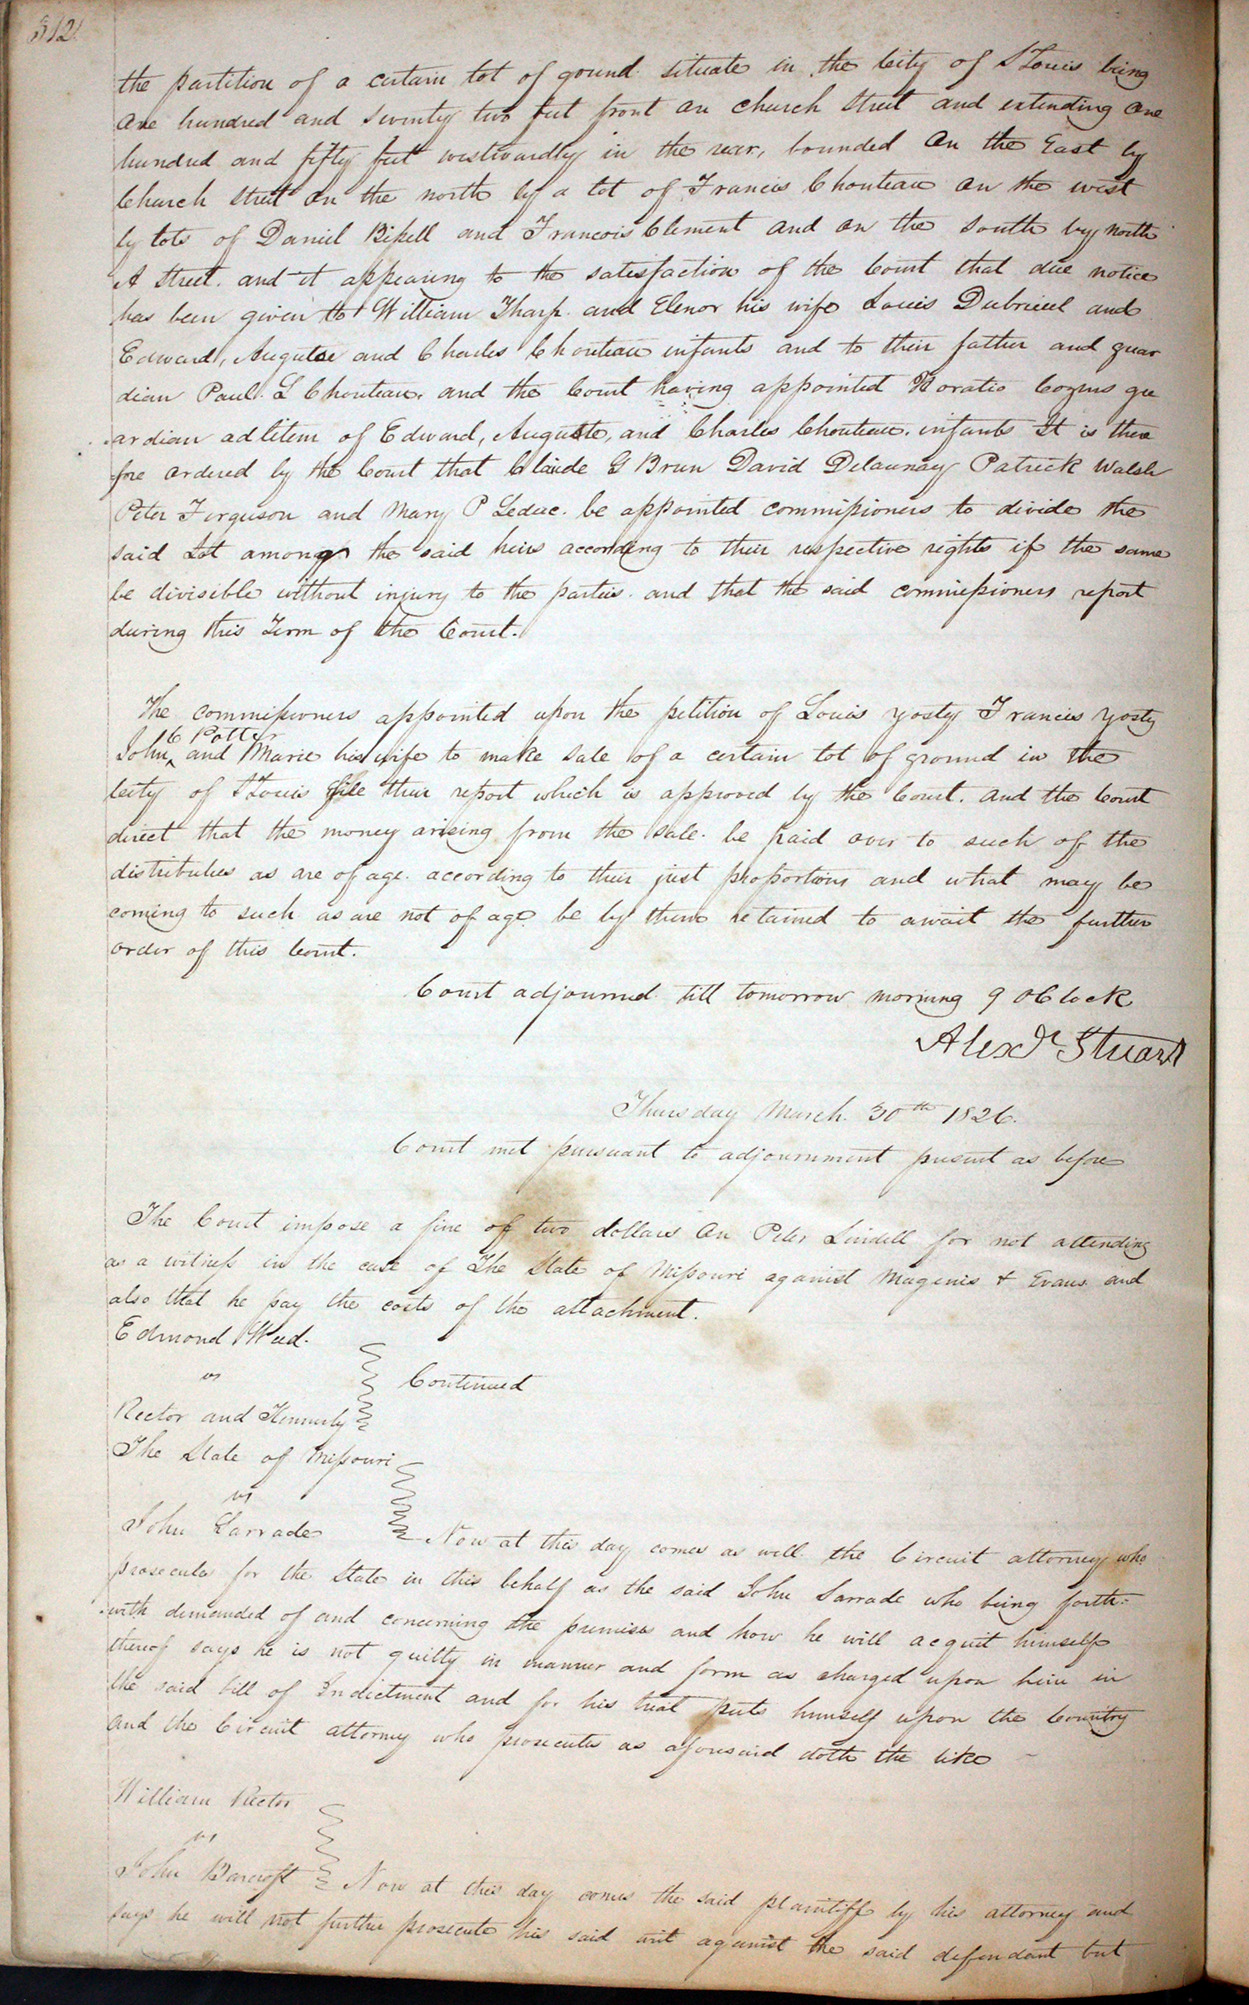 312
the partition of a certain lot of gound situate in the City of St Louis being
one hundred and seventy two feet front on church street and extending one
hundred and fifty feet westwardly in the rear, bounded on the East by
Church street on the north by a lot of Francis Chouteau on the west
by lots of Daniel Bissell and Francois Clement and on the south by north
A Street. and it appearing to the satisfaction of the Court that due notice
has been given to William Tharp and Elenor his wife Louis Dubrieul and
Edward, Auguste and Charles Chouteau infants and to their father and guar
dian Paul L Chouteau, and the Court having appointed Horatio Cozens gu
ardian adlitem of Edward, Auguste, and Charles Chouteau. infants It is there
fore ordered by the Court that Claide G Brun David Delaunay Patrick Walsh
Peter Ferguson and Mary P Leduc. be appointed commissioners to divide the
said Lot among the said heirs according to their respective rights if the same
be divisible without injury to the parties. and that the said commissioners report
during this Term of the Court.
The commissioners appointed upon the petition of Louis Yosty Francis Yosty
C Potter
John ‸ and Marie his wife to make sale of a certain lot of ground in the
City of St Louis file their report which is approved by the Court. and the Court
direct that the money arising from the sale. be paid over to such of the
distributees as are of age. according to their just proportions and what may be
coming to such as are not of age be by them retained to await the further
order of this Court.
Court adjourned till tomorrow morning 9 OClock
Alexdr Stuart
Thursday March. 30th 1826.
Court met pursuant to adjournment present as before
The Court impose a fine of two dollars on Peter Lindell for not attending
as a witness in the case of The State of Missouri against Magenis & Evans and
also that he pay the costs of the attachment.
Edmond Weed.
vs
Continued
Rector and Kennerly
The State of Missouri
vs
John Larrade
Now at this day comes as well the Circuit attorney who
prosecutes for the State in this behalf as the said John Sarrade who being forth-
with demanded of and concerning the premises and how he will acquit himself
thereof says he is not guilty in manner and form as charged upon him in
the said bill of Indictment and for his trial puts himself upon the Country
and the Circuit attorney who prosecutes as aforesaid doth the like
William Rector
vs
John Barcroft
Now at this day comes the said plaintiff by his attorney and
says he will not further prosecute his said writ against the said defendant but